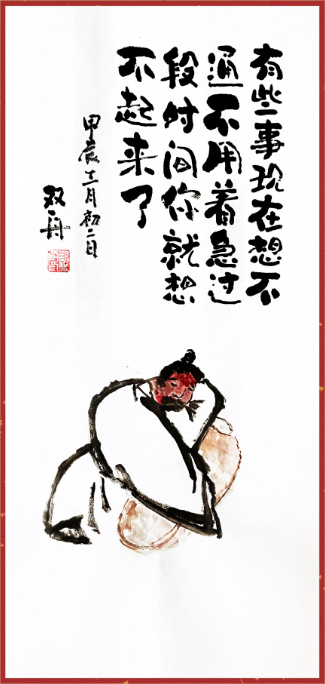 有些事现在想不
通不用着急过
段时间你就想
不起来了
甲辰十二月初二日
双舟